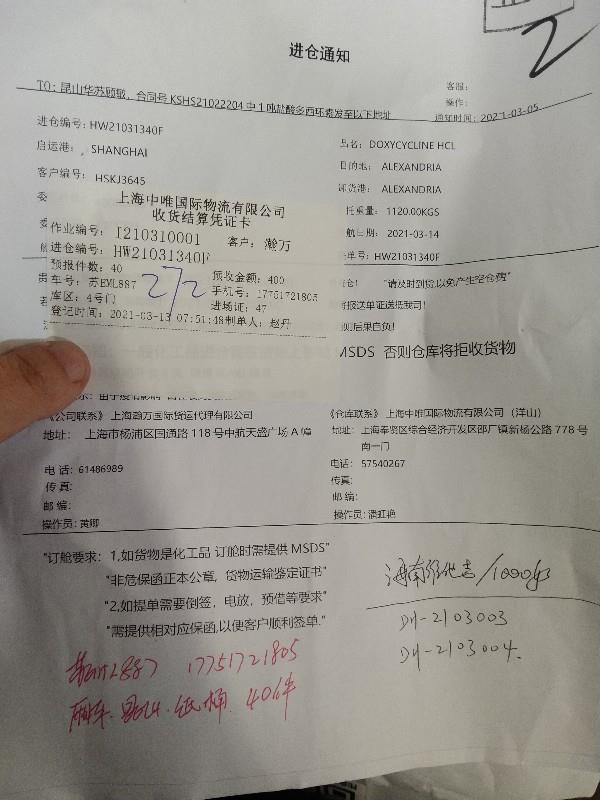 进仓通知
客服：
操作：
TO：昆山华苏顾敏，合同号 KSHS21022204 中 1 吨盐酸多西环素发至以下地址
通知时间：2021-03-05
进仓编号：HW21031340F
品名：DOXYCYCLINE HCL
启运港：SHANGHAI
目的地：ALEXANDRIA
卸货港：ALEXANDRIA
客户编号：HSKJ3645
托重量：1120.00KGS
航日期：2021-03-14
单号：HW21031340F
上海中唯国际物流有限公司
收货结算凭证卡
作业编号：I210310001 客户：瀚万
进仓编号：HW21031340F
预报件数：40 预收金额：400
车号：苏EML887 手机号：17751721805
库区：4号门 进场证：47
登记时间：2021-03-13 07:51:48制单人：赵丹
2/2
"请及时到货，以免产生空仓费"
报送单证送抵我司！
后果自负！
MSDS 否则仓库将拒收货物
《公司联系》上海瀚万国际货运代理有限公司
地址： 上海市杨浦区国通路 118 号中航天盛广场 A 幢
电话：61486989
传真：
邮编：
操作员：黄卿
《仓库联系》上海中唯国际物流有限公司（洋山）
地址：上海奉贤区综合经济开发区邵厂镇新杨公路 778 号
南一门
电话：57540267
传真：
邮编：
操作员：潘虹艳
"订舱要求：1,如货物是化工品 订舱时需提供 MSDS"
"非危保函正本公章，货物运输鉴定证书"
"2,如提单需要倒签，电放，预借等要求"
"需提供相对应保函,以便客户顺利签单."
DH-2103003
DH-2103004.
17751721805
纸桶 40件